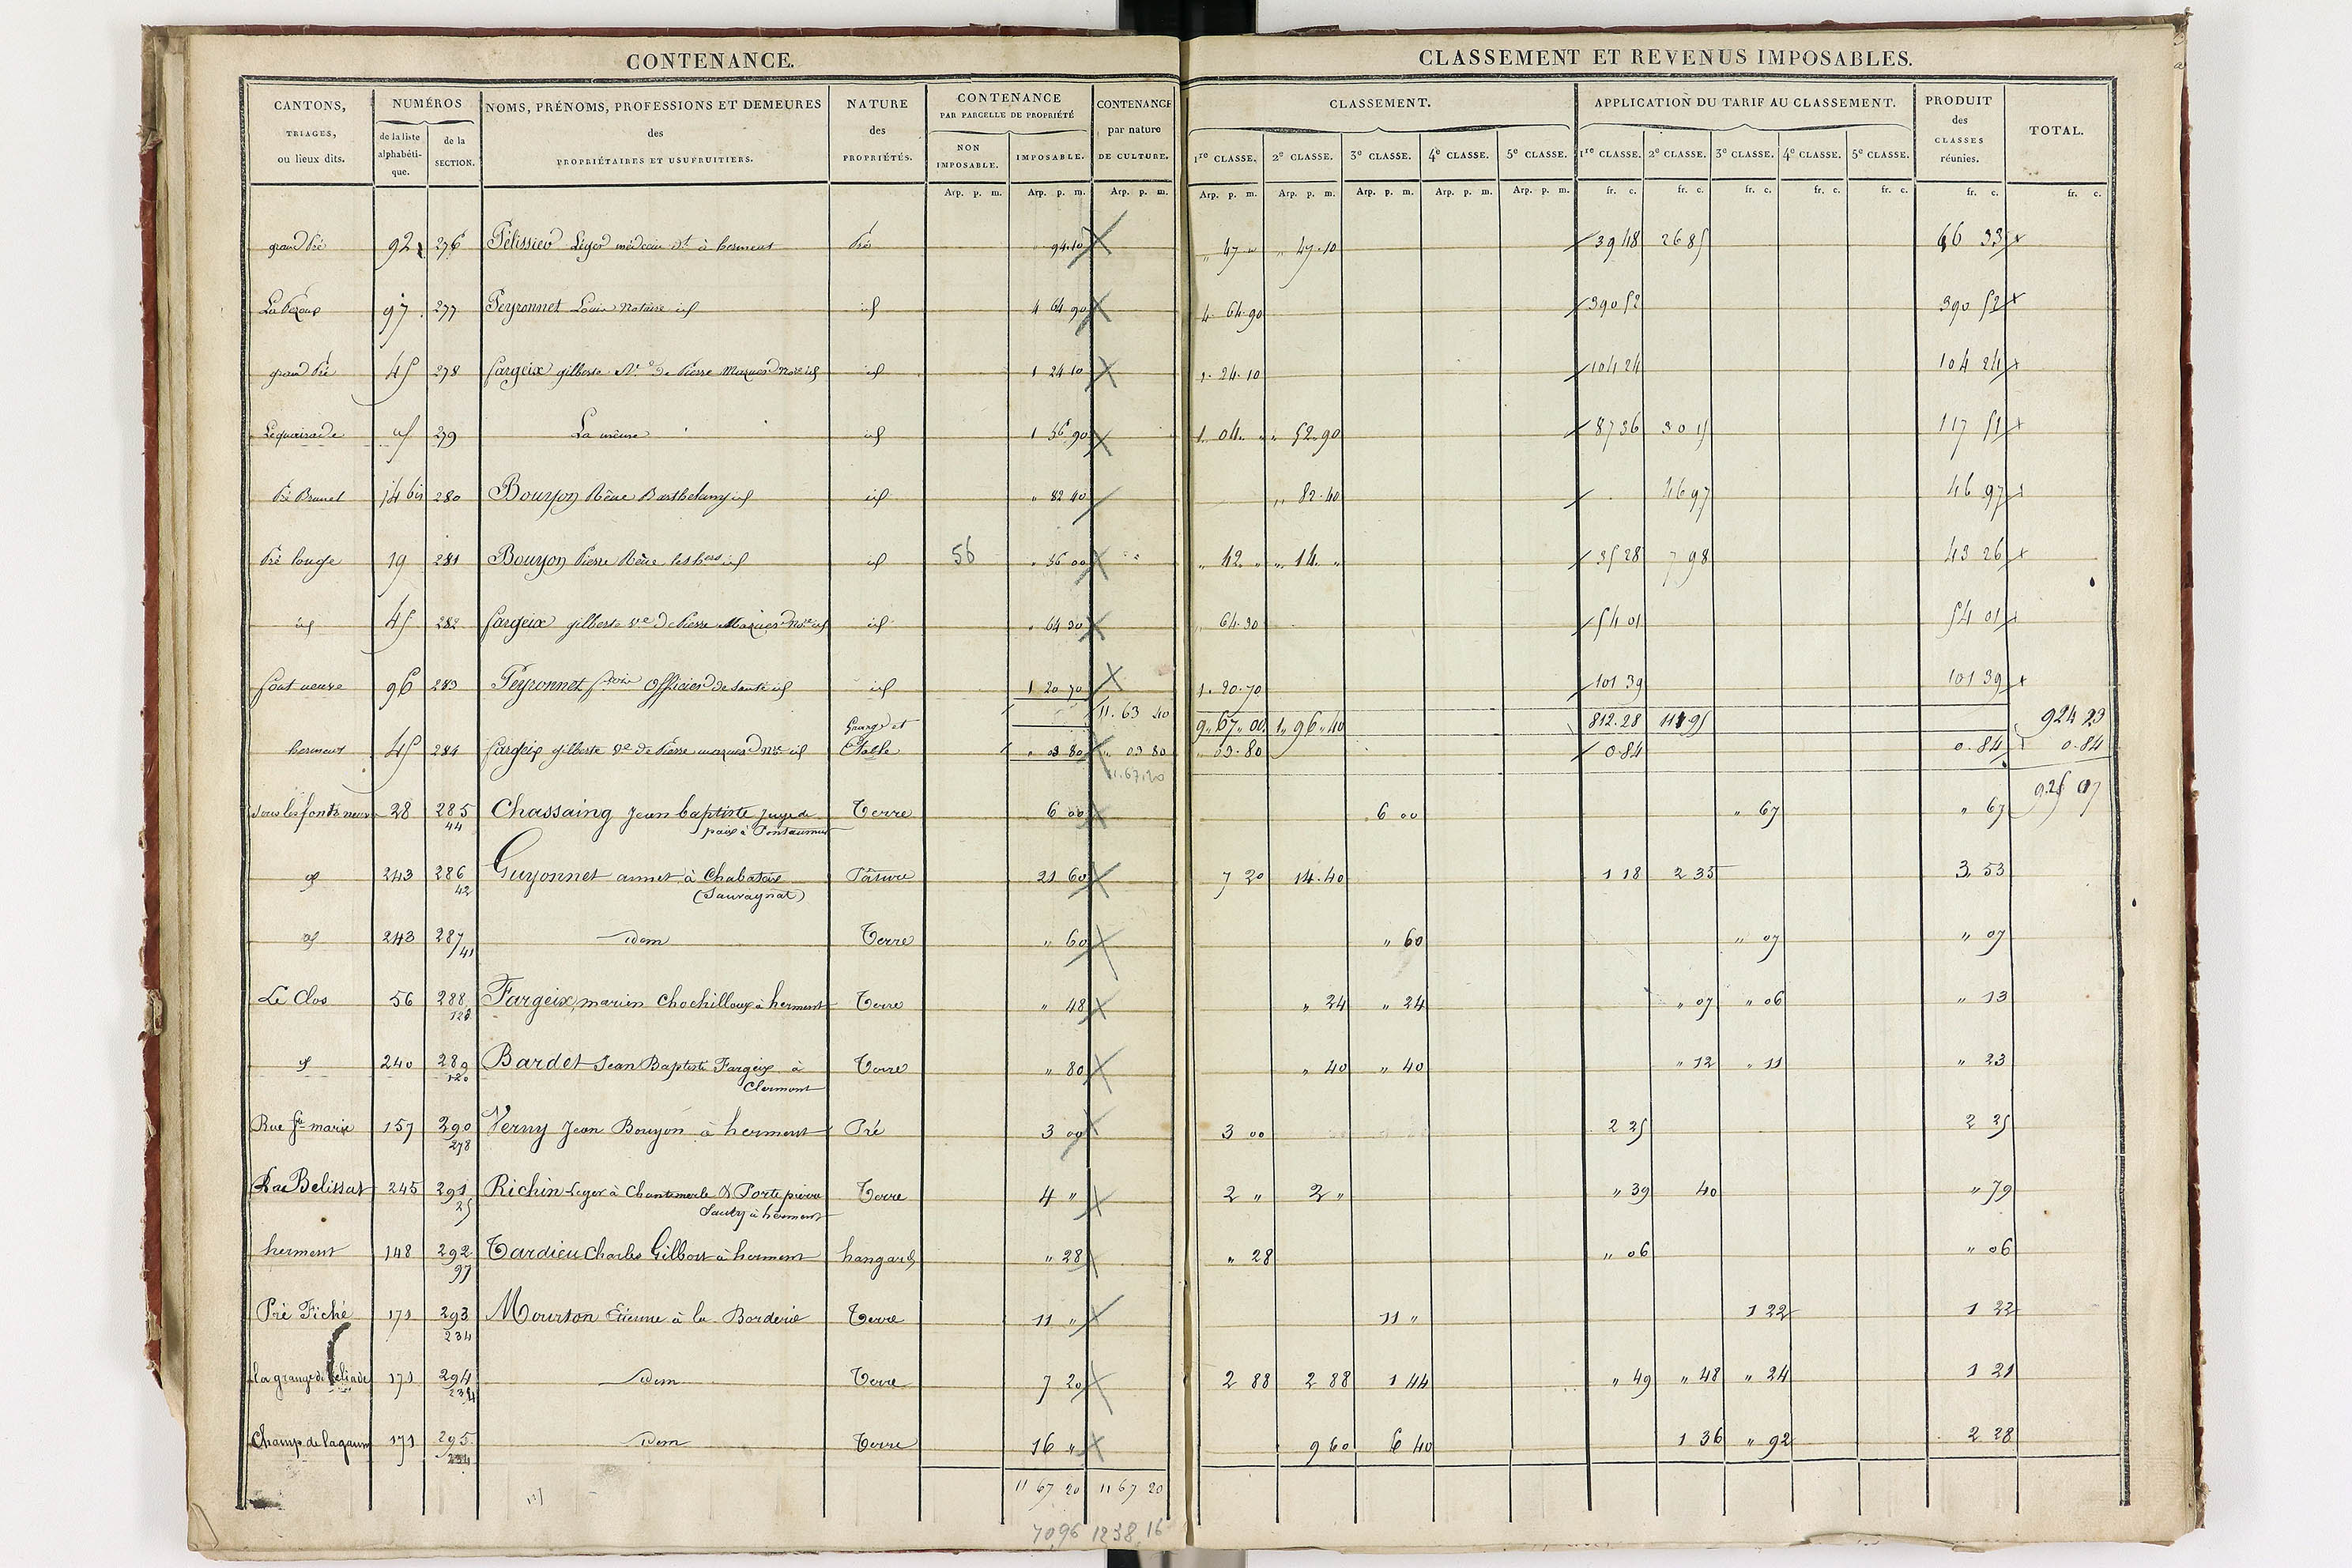 CONTENANCE.
CLASSEMENT ET REVENUS IMPOSABLES.
CANTONS, TRIAGES, ou lieux dits.
NUMÉROS
de la liste alphabétique.
de la SECTION.
NOMS, PRÉNOMS, PROFESSIONS ET DEMEURES des PROPRIÉTAIRES ET USUFRUITIERS.
NATURE des PROPRIÉTÉS.
CONTENANCE PAR PARCELLE DE PROPRIÉTÉ
NON IMPOSABLE.
IMPOSABLE.
CONTENANCE par nature DE CULTURE.
CLASSEMENT.
1re CLASSE. 2e CLASSE. 3e CLASSE. 4e CLASSE. 5e CLASSE.
APPLICATION DU TARIF AU CLASSEMENT.
1re CLASSE. 2e CLASSE. 3e CLASSE. 4e CLASSE. 5e CLASSE.
PRODUIT des CLASSES réunies.
TOTAL.
Arp. p. m. Arp. p. m. Arp. p. m. Arp. p. m. Arp. p. m. Arp. p. m. Arp. p. m. Arp. p. m. fr. c. fr. c. fr. c. fr. c. fr. c. fr. c. fr. c.
grand Pré 92 276 Pélissier Léger médecin dt à herment Pré 94.10 " 47 " " 47.10 39 48 26 85 66 33
97 277 Peyronnet Louis Notaire id id 4 64 90 4. 64.90 390 52 390 52
grand Pré 45 278 fargeix gilberte Ve de Pierre id 1 24 10 1. 24.10 104 24 104 24
id 279 La même id 1 56 90 1. 04. " " 52.90 87 36 30 15 117 51
Pré Brunel 14 bis 280 Bouyon Réné Barthelamy id id " 82 40 " 82.40 46 97 46 97
Pré longe 19 281 Bouyon Pierre Réné les hers id id 56 " 56 00 " 42. " " 14. " 35 28 7 98 43 26
id 45 282 fargeix gilberte ve de Pierre id " 64 30 64.30 54 01 54 01
font neuve 96 283 Peyronnet Officier de santé id id 1 20 70 1. 20.70 101 39 101 39
11. 63 40 9. 67. 00. 1. 96. 40 812.28 111 95 924 23
herment 45 284 fargeix gilberte ve de Pierre id Grange et Etable " 03 80 " 03 80 " 03.80 0.84 0.84 0.84
11.67.20
925 07
sous les fonts neuv 28 285 44 Chassaing Jean baptiste juge de paix à Pontaumur Terre 6 00 6 00 " 67 " 67
id 243 286 42 Guyonnet annet à Chabatoix (Sauvagnat) Pâture 21 60 7 20 14.40 1 18 2 35 3. 53
id 243 287 41 idem Terre " 60 " 60 " 07 " 07
Le Clos 56 288 128 Fargeix, marien Chochilloux à herment Terre " 48 " 24 " 24 " 07 " 06 " 13
id 240 289 120 Bardet Jean Baptiste Fargeix à Clermont Terre " 80 " 40 " 40 " 12 " 11 " 23
Rue Ste marie 157 290 278 Verny Jean Bouyon à herment Pré 3 00 3 00 2 25 2 25
Belissat 245 291 25 Richin Leger à Chantemerle & Porte pierre à herment Terre 4 " 2 " 2 " " 39 40 " 79
herment 148 292 97 Tardieu Charles Gilbert à herment hangard " 28 " 28 " 06 " 06
Pré Fiché 171 293 234 Mourton Etienne à la Borderie Terre 11 " 11 " 1 22 1 22
la grange de 171 294 234 idem Terre 7 20 2 88 2 88 1 44 " 49 " 48 " 24 1 21
Champ de 171 295 idem Terre 16 " 9 60 6 40 1 36 " 92 2 28
11 67 20 11 67 20
70,96 1238,16